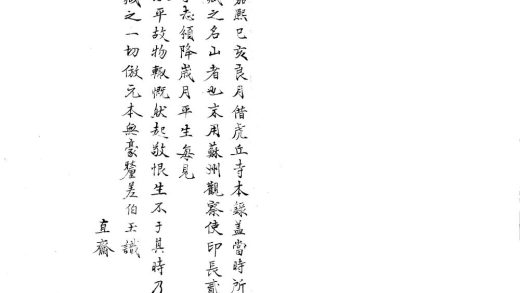 嘉熙己亥良月借虎丘寺本錄蓋當時所
藏之名山者也末用蘇州觀察使印長
志頒降歲月平生每見
平故物輒慨然起敬恨生不于其時乃
藏之一切倣元本無豪釐差伯玉識
直齋